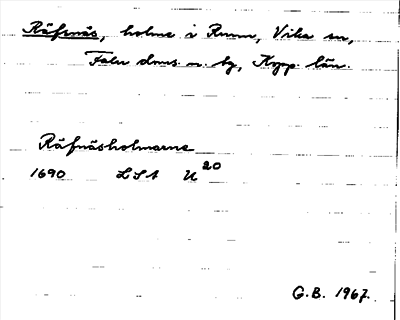 Räfsnäs, holme i Runn, Vika sn,
Falu doms. o. by, Kopp. län.
Räfnäsholmarne
1690 LSA U 20
G.B. 1967.